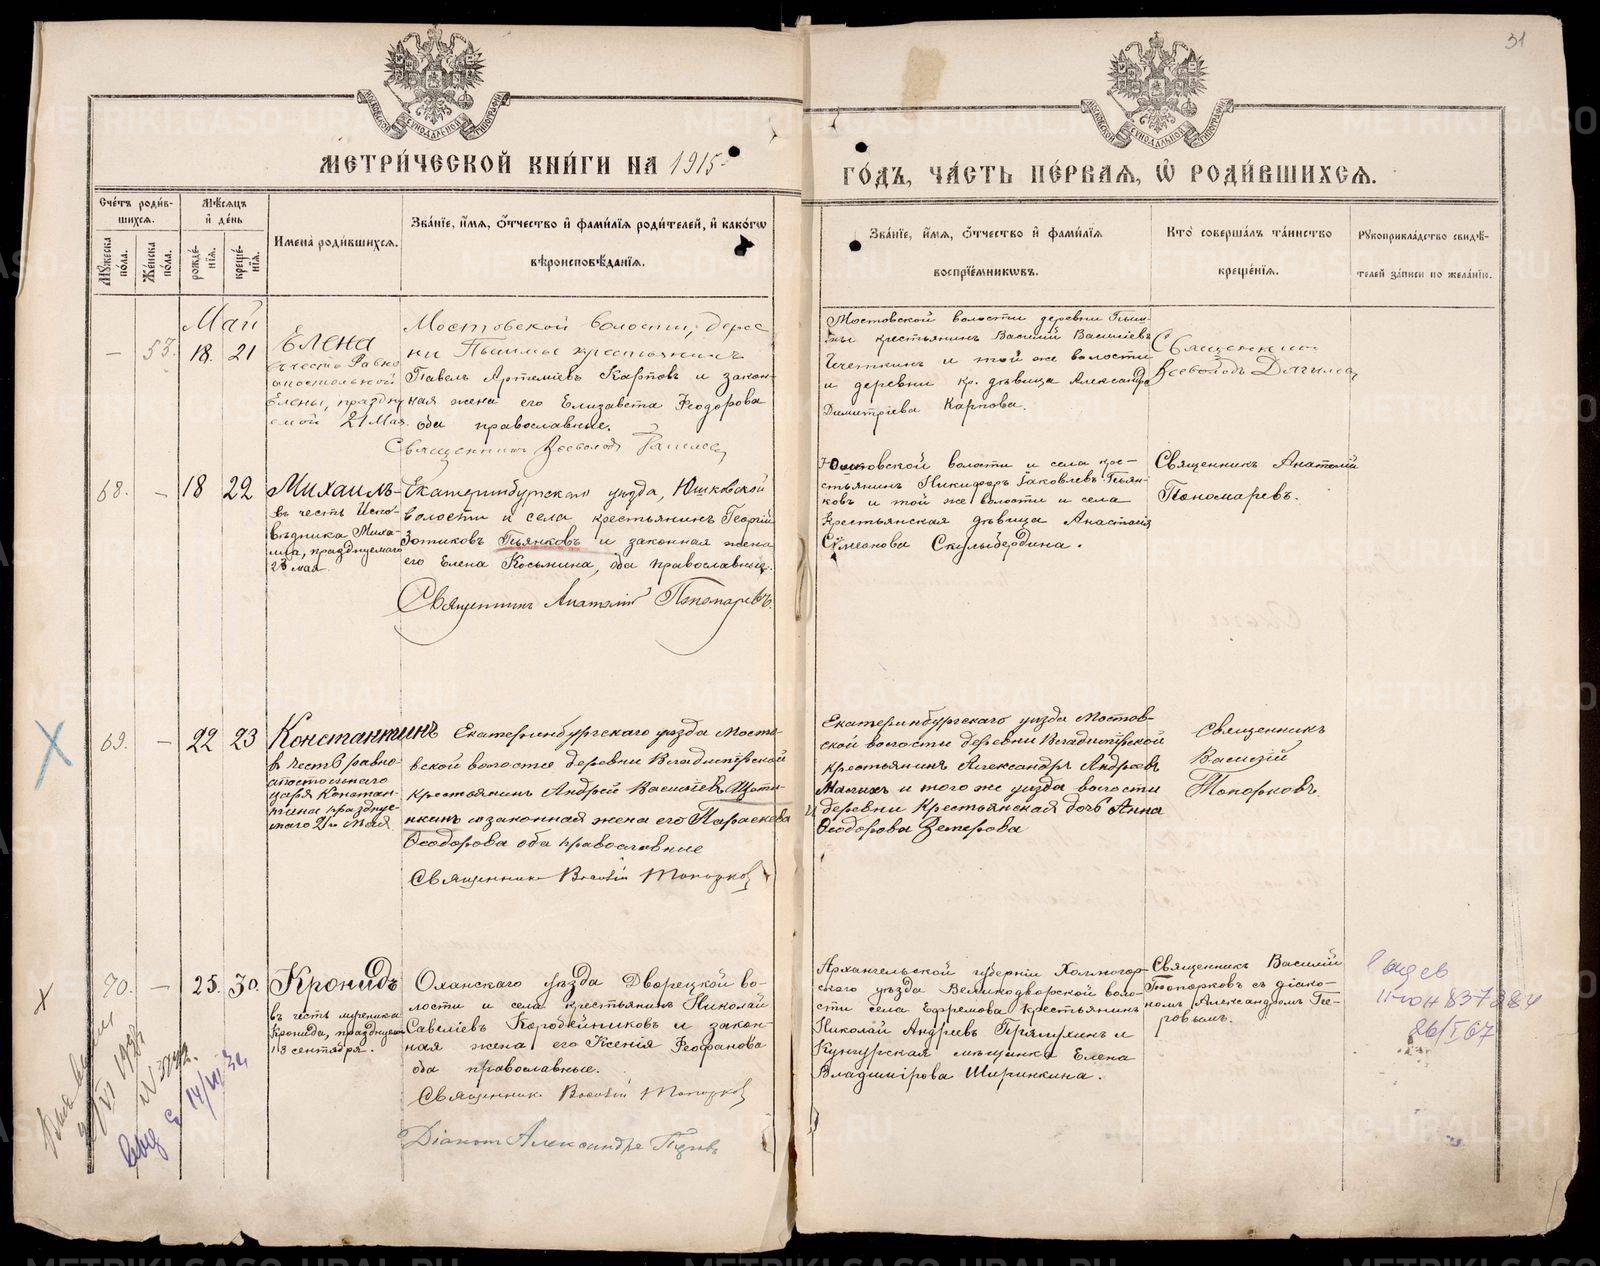 31
МОСКОВСКОЙ СѴНОДАЛЬНОЙ ТИПОГРАФІИ
МОСКОВСКОЙ СѴНОДАЛЬНОЙ ТИПОГРАФІИ
МЕТРИ́ЧЕСКОЙ КНИ́ГИ НА 1915
ГО́ДЪ, ЧА́СТЬ ПЕ́РВАЯ, Ѡ РОДИ́ВШИХСЯ.
Сче́тъ роди́в-
шихся.
Мꙋ́жеска по́ла.
Же́нска по́ла.
Мѣ́сяцъ и де́нь
рожде́нія.
креще́нія.
Имена̀ роди́вшихся.
Зва́ніе, и́мя, о́тчество и фами́лія роди́телей, и како́гѡ
вѣроисповѣ́данія.
Зва́ніе, и́мя, о́тчество и фами́лія
воспріе́мникѡвъ.
Кто̀ соверша́лъ та́инство
креще́нія.
Рꙋкоприкла́дство свидѣ́-
телей за́писи по жела́нію.
Май
— 53. 18. 21
Елена
въ честь Равно
апостольной
Елены, праздну
емой 21 Мая.
Мостовской волости, дерев
ни Пышмы крестьянинъ
Павелъ Артеміевъ Карповъ и закон-
ная жена его Елизавета Ѳеодорова
оба православные.
Священникъ Всеволодъ
Мостовской волости деревни Пыш-
мы крестьянинъ Василий Васильевъ
и той же волости
и деревни кр. дѣвица Александра
Димитріева Карпова.
Священникъ
Всеволодъ
68. — 18 22
Михаилъ
въ честь Испо-
вѣдника Миха-
ила, празднуемаго
23 мая.
Екатеринбургскаго уѣзда, Юшковской
волости и села крестьянинъ Георгій
Зотиковъ Пьянковъ и законная жена
его Елена Косьмина, оба православные.
Священникъ Анатолій Пономаревъ.
Юшковской волости и села кре-
стьянинъ Никифоръ Іаковлевъ Пьян-
ковъ и той же волости и села
крестьянская дѣвица Анастасія
Сѵмеонова Скулыбердина.
Священникъ Анатолій
Пономаревъ.
69. — 22 23
Константинъ
въ честь равно-
апостольнаго
царя Констан-
тина празднуе-
маго 21го Мая
Екатеринбургскаго уѣзда Мосто-
вской волости деревни Владимірской
крестьянинъ Андрей Васильевъ Щети-
нкинъ и законная жена его Параскева
Ѳеодорова оба православные
Священникъ Василій Топорковъ
Екатеринбургскаго уѣзда Мостов-
ской волости деревни Владимірской
крестьянинъ Александръ Андреевъ
Малыхъ и того же уѣзда волости
и деревни Крестьянская дочь Анна
Ѳеодорова Ветерова
Священникъ
Василій
Топорковъ.
70. — 25. 30.
Кронидъ
въ честь мученика
Кронида, празднуем.
13 сентября.
Оханскаго уѣзда Дворецкой во-
лости и села крестьянинъ Николай
Савеліевъ Коробейниковъ и закон-
ная жена его Ксенія Ѳеофанова
оба православные.
Священникъ Василій Топорковъ
Діаконъ Александръ
Архангельской губерніи Холмогор-
скаго уѣзда Великодворской воло-
сти села Ефремова крестьянинъ
Николай Андреевъ Прялухинъ и
Кунгурская мѣщанка Елена
Владимірова Ширинкина.
Священникъ Василій
Топорковъ съ діако-
номъ Александромъ Пе-
ровымъ.
26/I 67
METRIKI.GASO-URAL.RU